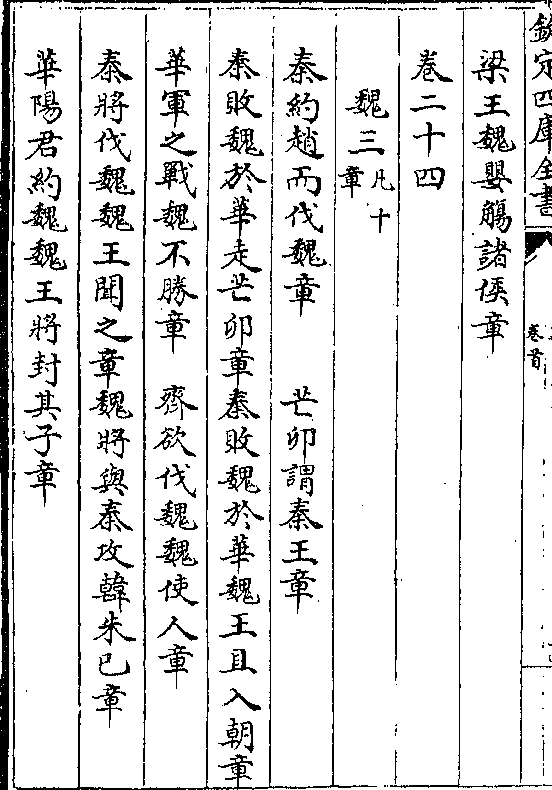 欽定四庫全書
卷首
梁王魏嬰觴諸侯章
卷二十四
魏三凡十章
秦約趙而伐魏章　芒卯謂秦王章
秦敗魏於華走芒卯章秦敗魏於華魏王且入朝章
華軍之戰魏不勝章　齊欲伐魏魏使人章
秦將伐魏魏王聞之章魏將與秦攻韓朱已章
華陽君約魏魏王將封其子章